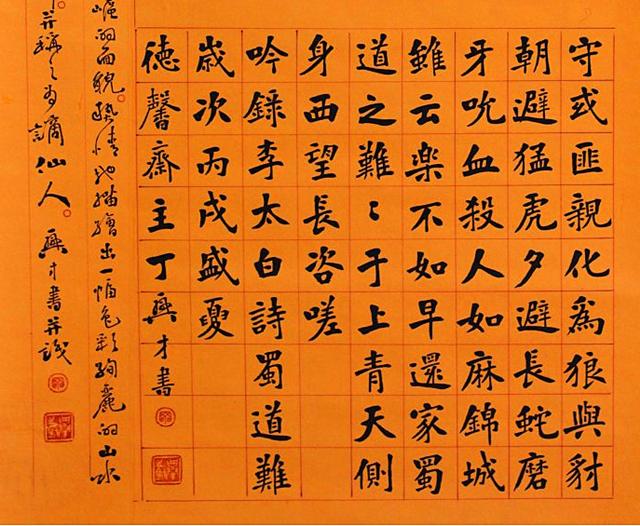 守或匪親化爲狼與豺
朝避猛虎夕避長蛇磨
牙吮血殺人如麻錦城
雖云楽不如早還家蜀
道之難〻于上青天側
身西望長咨嗟
吟錄李太白詩蜀道難
歲次丙戌盛夏
德馨齋主丁興才書
嶇的面貌。熱情地描繪出一幅色彩絢麗的山水
。并稱之為謫仙人。興才書并識